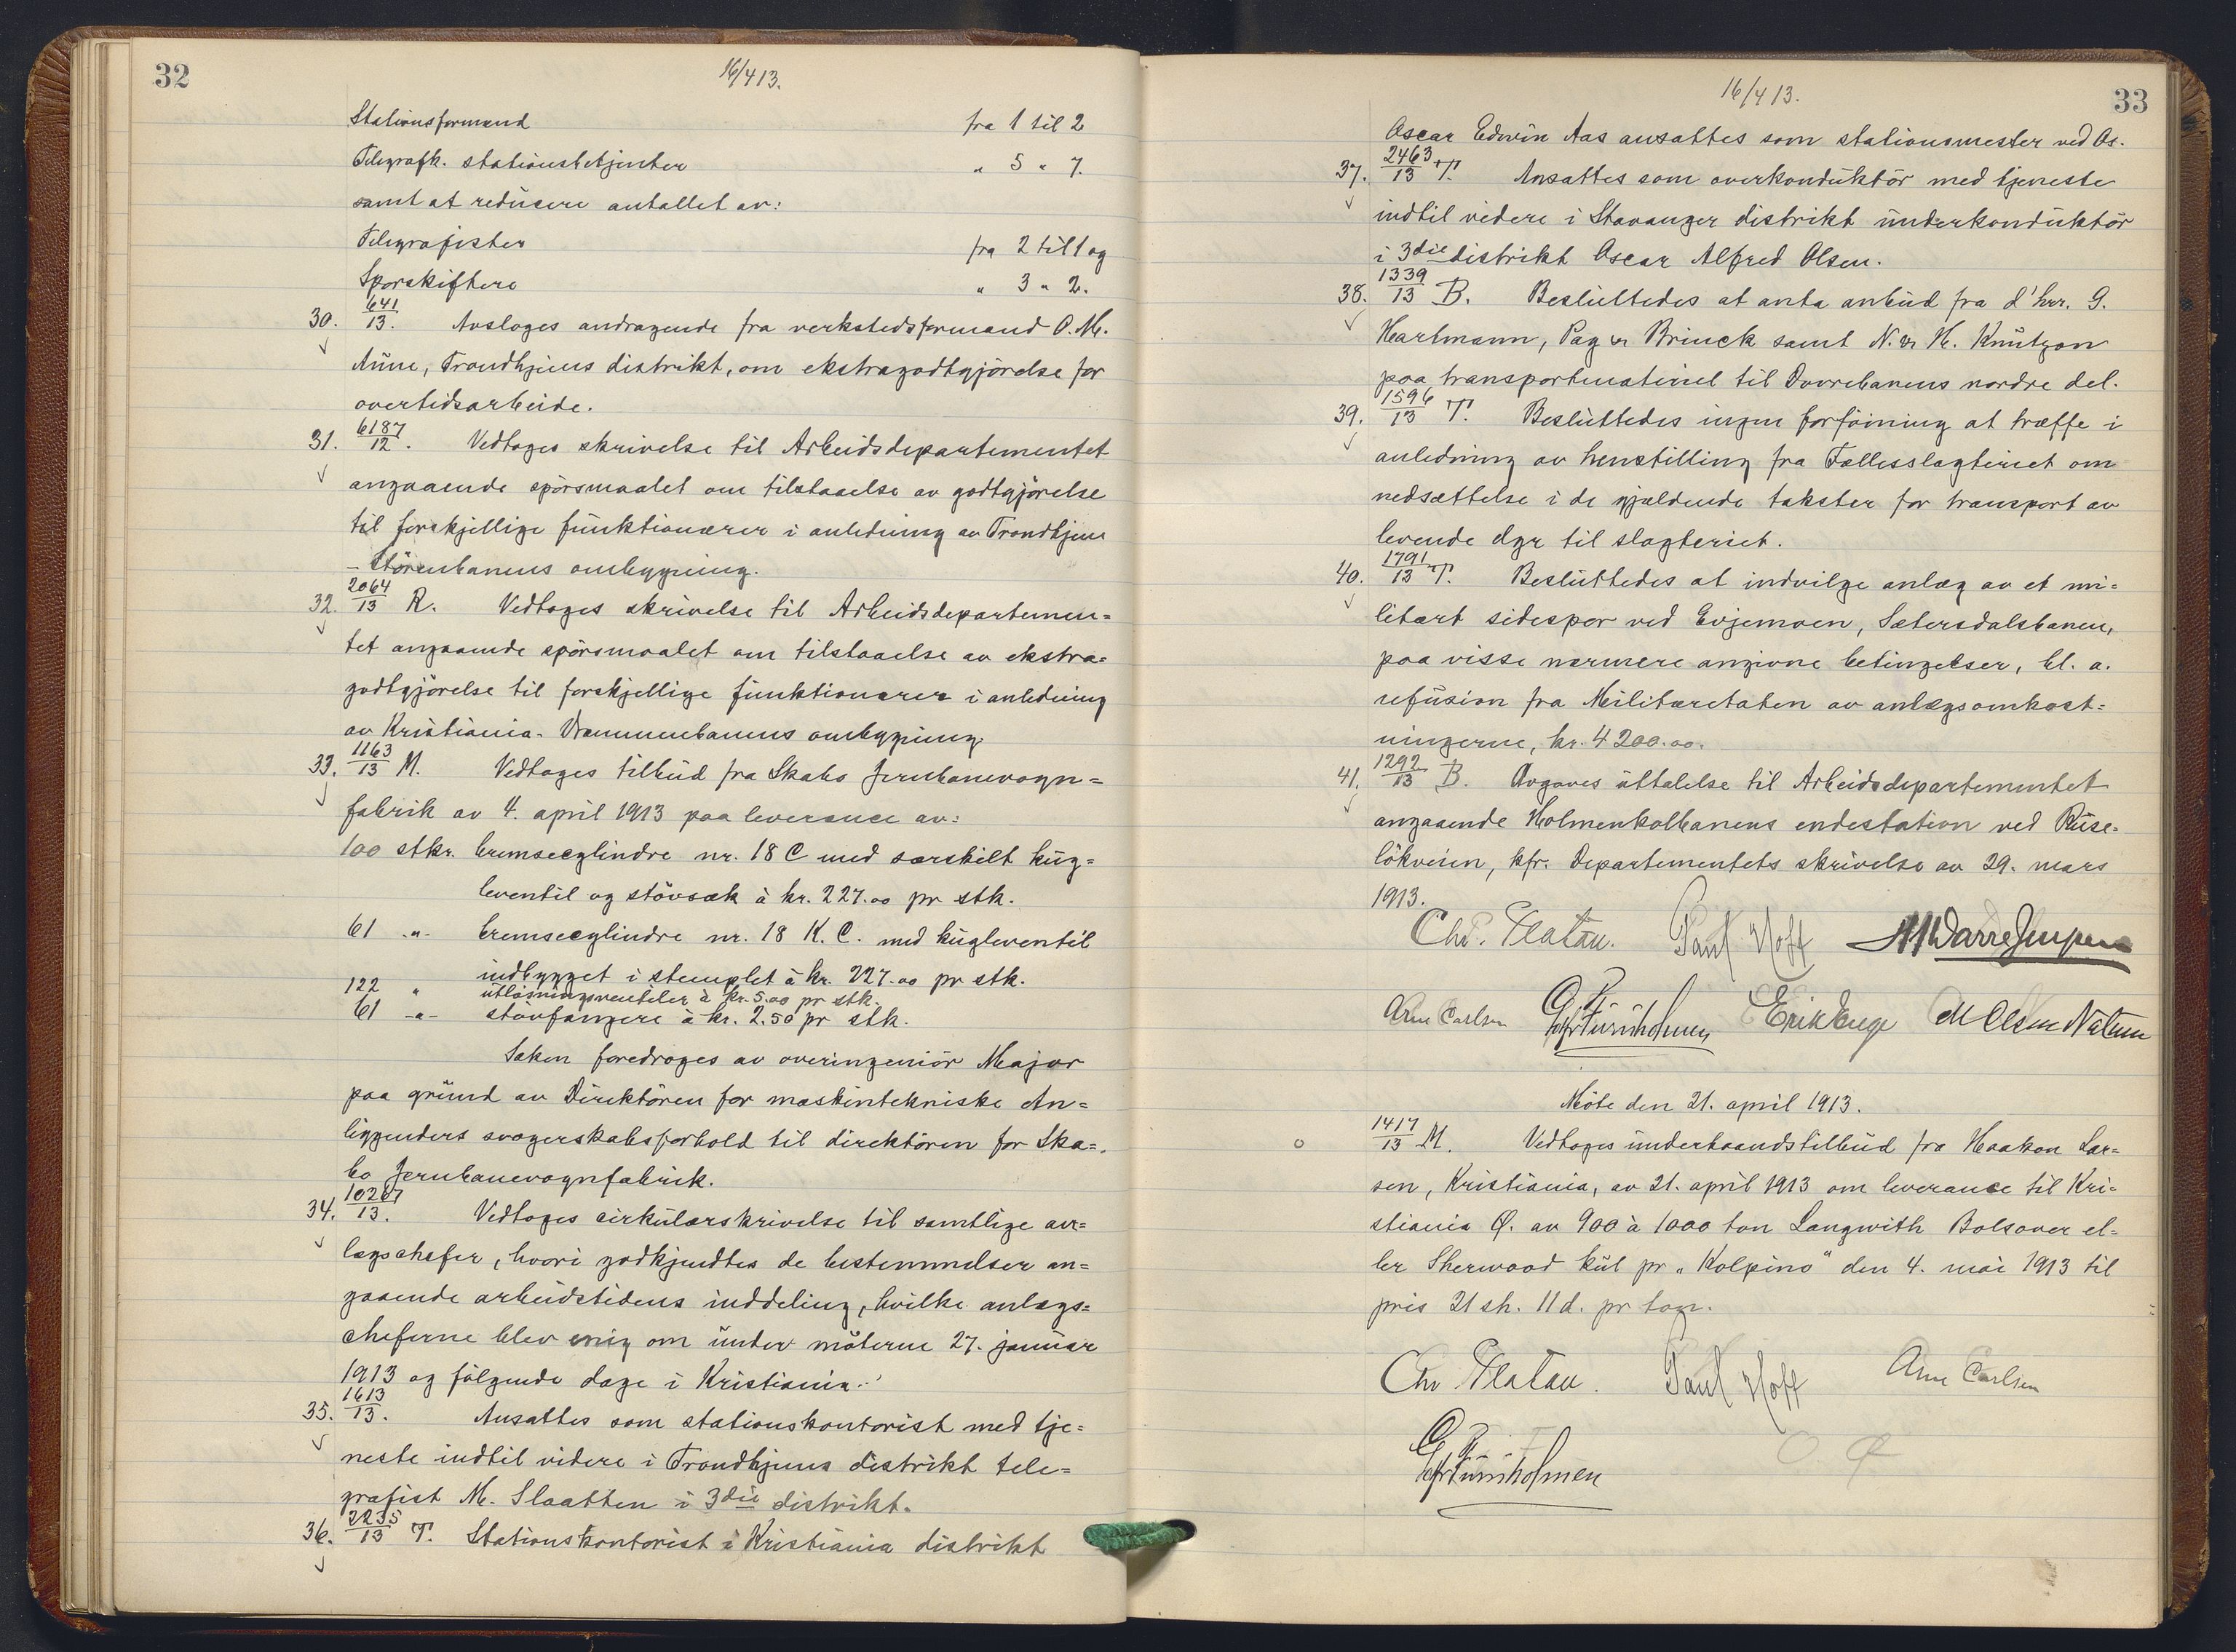 32
16/4 13.
Stationsformænd fra 1 til 2
Telegrafk. stationsbetjenter " 5 " 7.
samt at redusere antallet av:
Telegrafister fra 2 til 1 og
Sporskiftere " 3 " 2.
30. 641/13. Avsloges andragende fra verkstedsformand O. M.
Aune, Trondhjems distrikt, om ekstragodtgjörelse for
overtidsarbeide.
31. 6187/12. Vedtoges skrivelse til Arbeidsdepartementet
angaaende spörsmaalet om tilstaaelse av godtgjörelse
til forskjellige funktionærer i anledning av Trondhjem
- Störenbanens ombygning.
32. 2064/13 R. Vedtoges skrivelse til Arbeidsdepartemen=
tet angaaende spörsmaalet om tilstaaelse av ekstra=
godtgjörelse til forskjellige funktionærer i anledning
av Kristiania-Drammenbanens ombygning.
33. 1163/13 M. Vedtoges tilbud fra Skabo Jernbanevogn=
fabrik av 4. april 1913 paa leverance av:
100 stkr. bremsecylindre nr. 18 C med særskilt kug=
leventil og stövsæk à kr. 227.00 pr stk.
61 -"- bremsecylindre nr. 18 K. C. med kugleventil
indbygget i stemplet à kr. 227.00 pr stk.
122 " utlösningsventiler à kr. 5.00 pr stk.
61 -"- stövfangere à kr. 2.50 pr stk.
Saken foredroges av overingeniör Major
paa grund av Direktören for maskintekniske An=
liggenders svogerskabsforhold til direktören for Ska=
bo Jernbanevognfabrik.
34. 10267/13. Vedtoges cirkulærskrivelse til samtlige an=
lægschefer, hvori godkjendtes de bestemmelser an=
gaaende arbeidstidens inddeling, hvilke anlægs=
cheferne blev enig om under möterne 27. januar
1913 og fölgende dage i Kristiania.
35. 1613/13. Ansattes som stationskontorist med tje=
neste indtil videre i Trondhjems distrikt tele=
grafist M. Slaatten i 3die distrikt.
36. 2235/13 T. Stationskontorist i Kristiania distrikt
33
16/4 13.
Oscar Edwin Aas ansattes som stationsmester ved Os.
37. 2463/13 T. Ansattes som overkonduktör med tjeneste
indtil videre i Stavanger distrikt underkonduktör
i 3die distrikt Oscar Alfred Olsen.
38. 1339/13 B. Besluttedes at anta anbud fra d'hrr. G.
Hartmann, Pay & Brinck samt N. & H. Knutzon
paa transportmateriel til Dovrebanens nordre del.
39. 1596/13 T. Besluttedes ingen forföining at træffe i
anledning av henstilling fra Fællesslagteriet om
nedsættelse i de gjældende takster for transport av
levende dyr til slagteriet.
40. 1791/13 T. Besluttedes at indvilge anlæg av et mi=
litært sidespor ved Evjemoen, Sætersdalsbanen,
paa visse nærmere angivne betingelser, bl. a.
refusion fra Militæretaten av anlægsomkost=
ningerne, kr. 4200.00.
41. 1292/13 B. Avgaves uttalelse til Arbeidsdepartementet
angaaende Holmenkolbanens endestation ved Ruse=
lökveien, kfr. Departementets skrivelse av 29. mars
1913.
Chr. Platou. Paul Hoff
Arne Carlsen Erik Enge M Olsen Nalum
Möte den 21. april 1913.
1417/13 M. Vedtoges underhaandstilbud fra Haakon Lar=
sen, Kristiania, av 21. april 1913 om leverance til Kri=
stiania Ö. av 900 à 1000 ton Langwith Bolsover el=
ler Sherwood kul pr "Kolpino" den 4. mai 1913 til
pris 21 sh. 11 d. pr ton.
Chr Platou. Paul Hoff Arne Carlsen